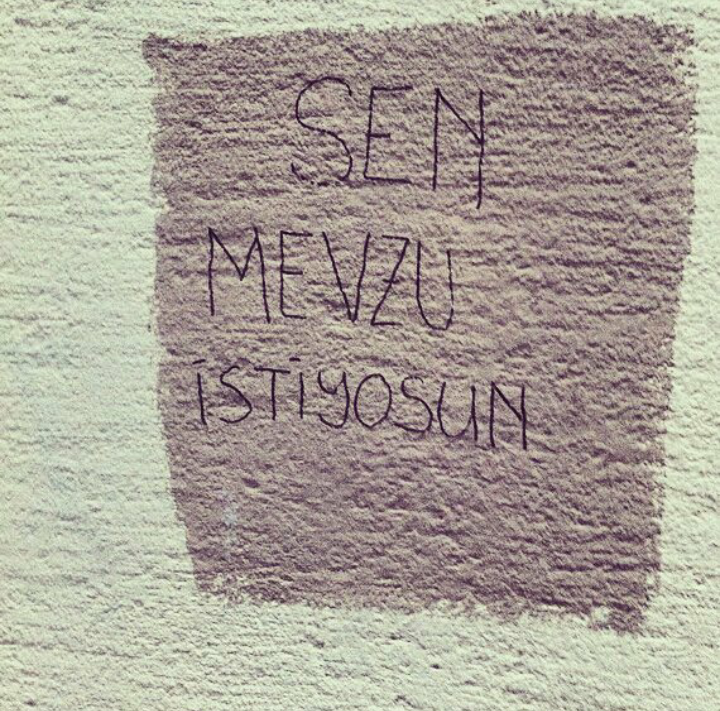 SEN
MEVZU
İSTİYOSUN